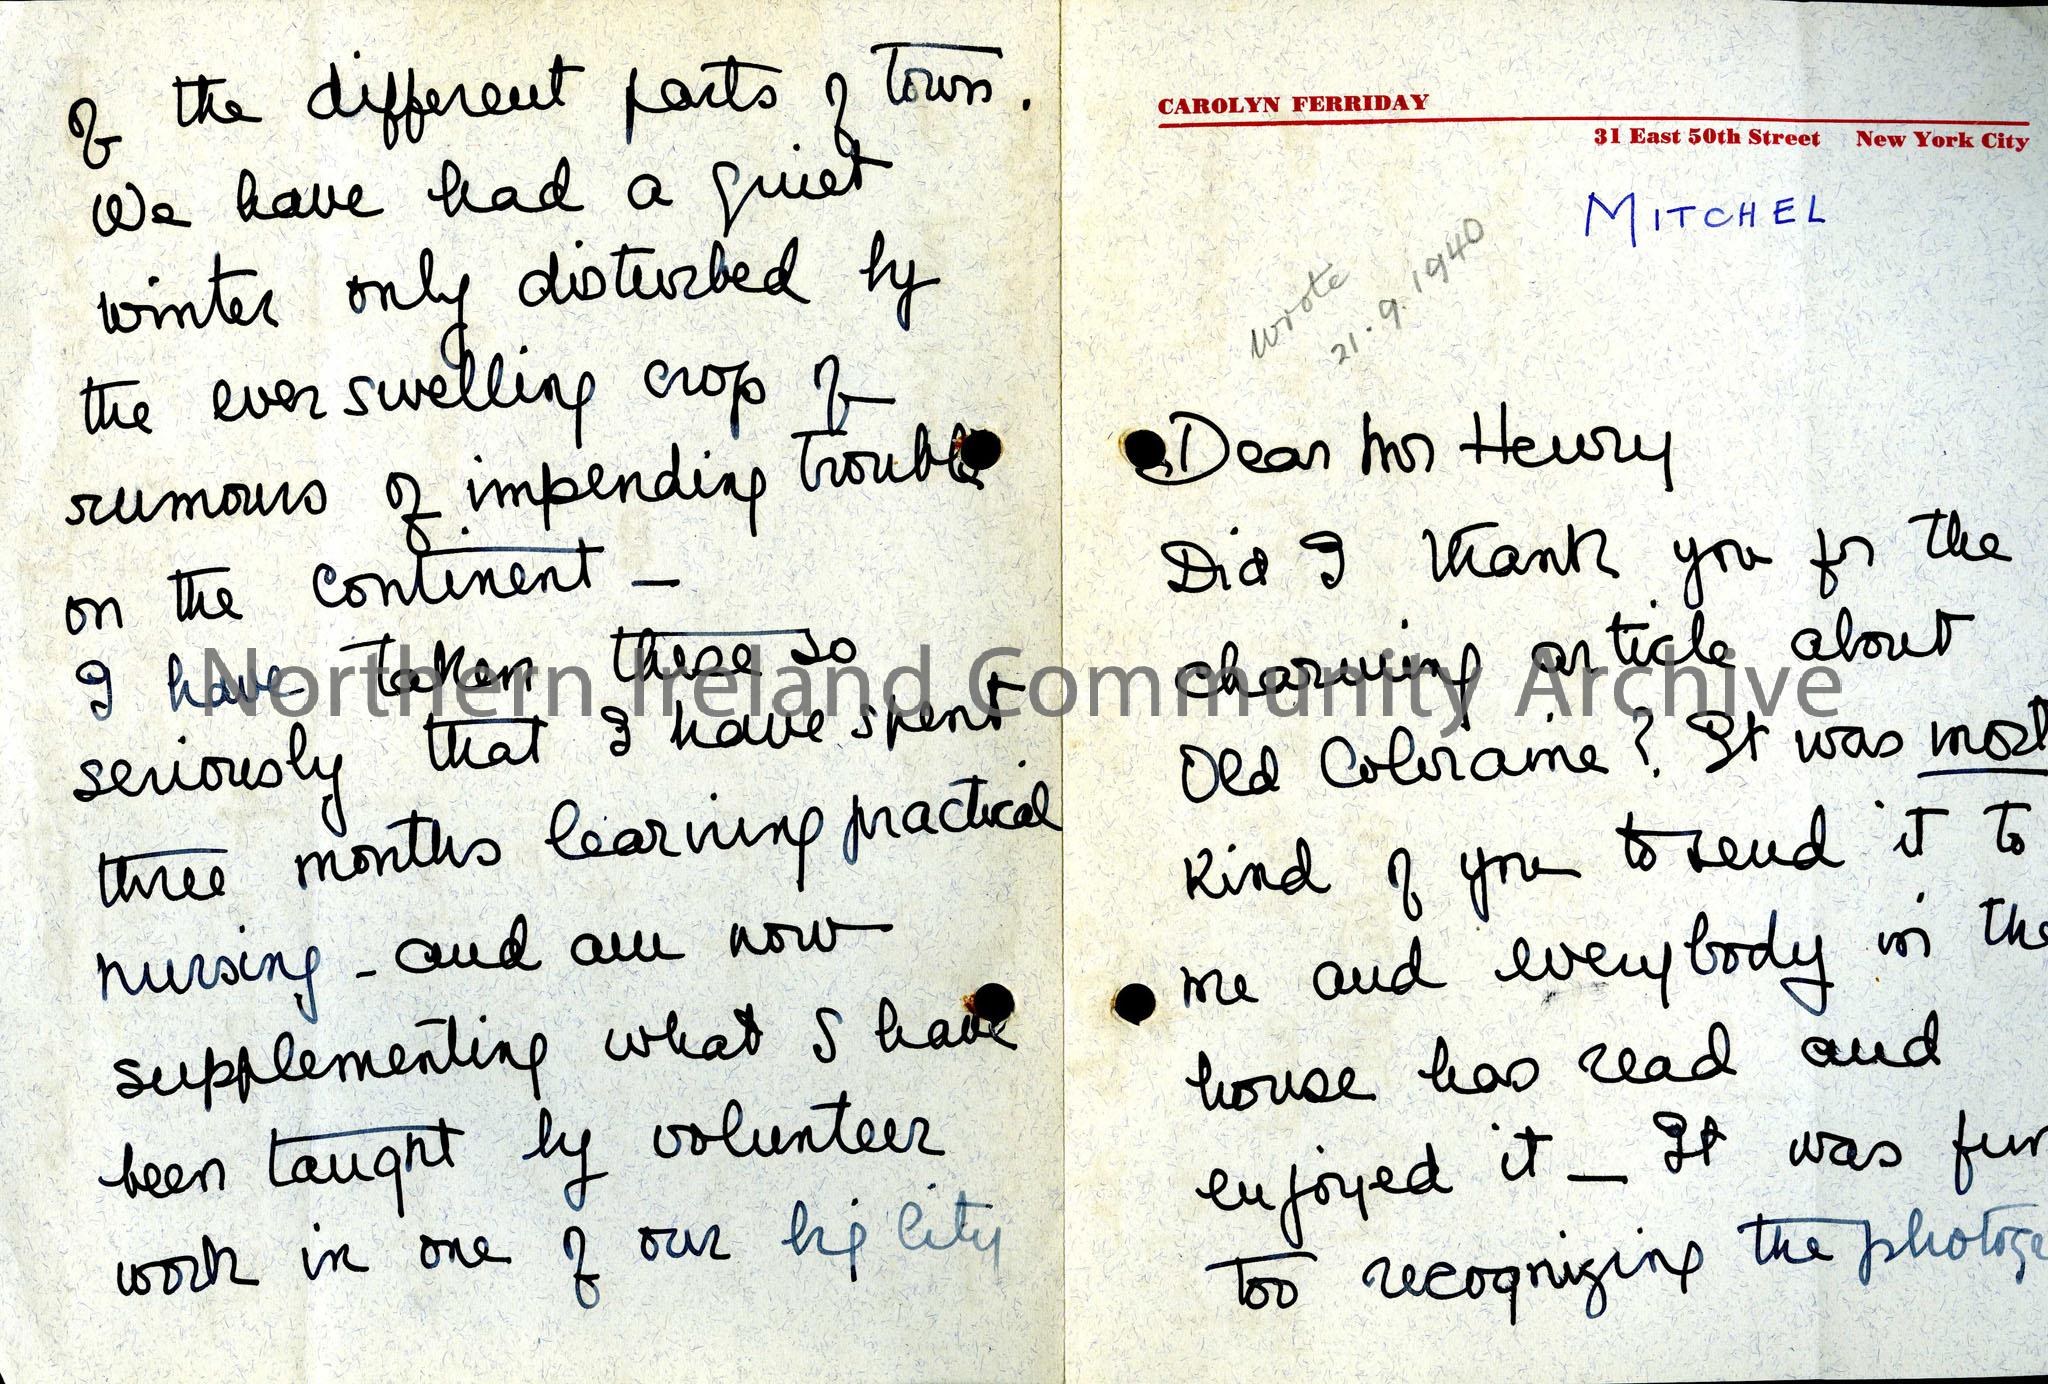 CAROLYN FERRIDAY
31 East 50th Street New York City
MITCHEL
wrote
21.9.1940
Dear Mr Henry
Did I thank you for the
charming article about
Old Coleraine? It was most
kind of you to send it to
me and everybody in the
house has read and
enjoyed it — It was fun
too recognizing the photog
of the different parts of town.
We have had a quiet
winter only disturbed by
the ever swelling crop of
rumours of impending trouble
on the continent —
I have taken these so
seriously that I have spent
three months learning practical
nursing - and am now
supplementing what I have
been taught by volunteer
work in one of our big city
Northern Ireland Community Archive